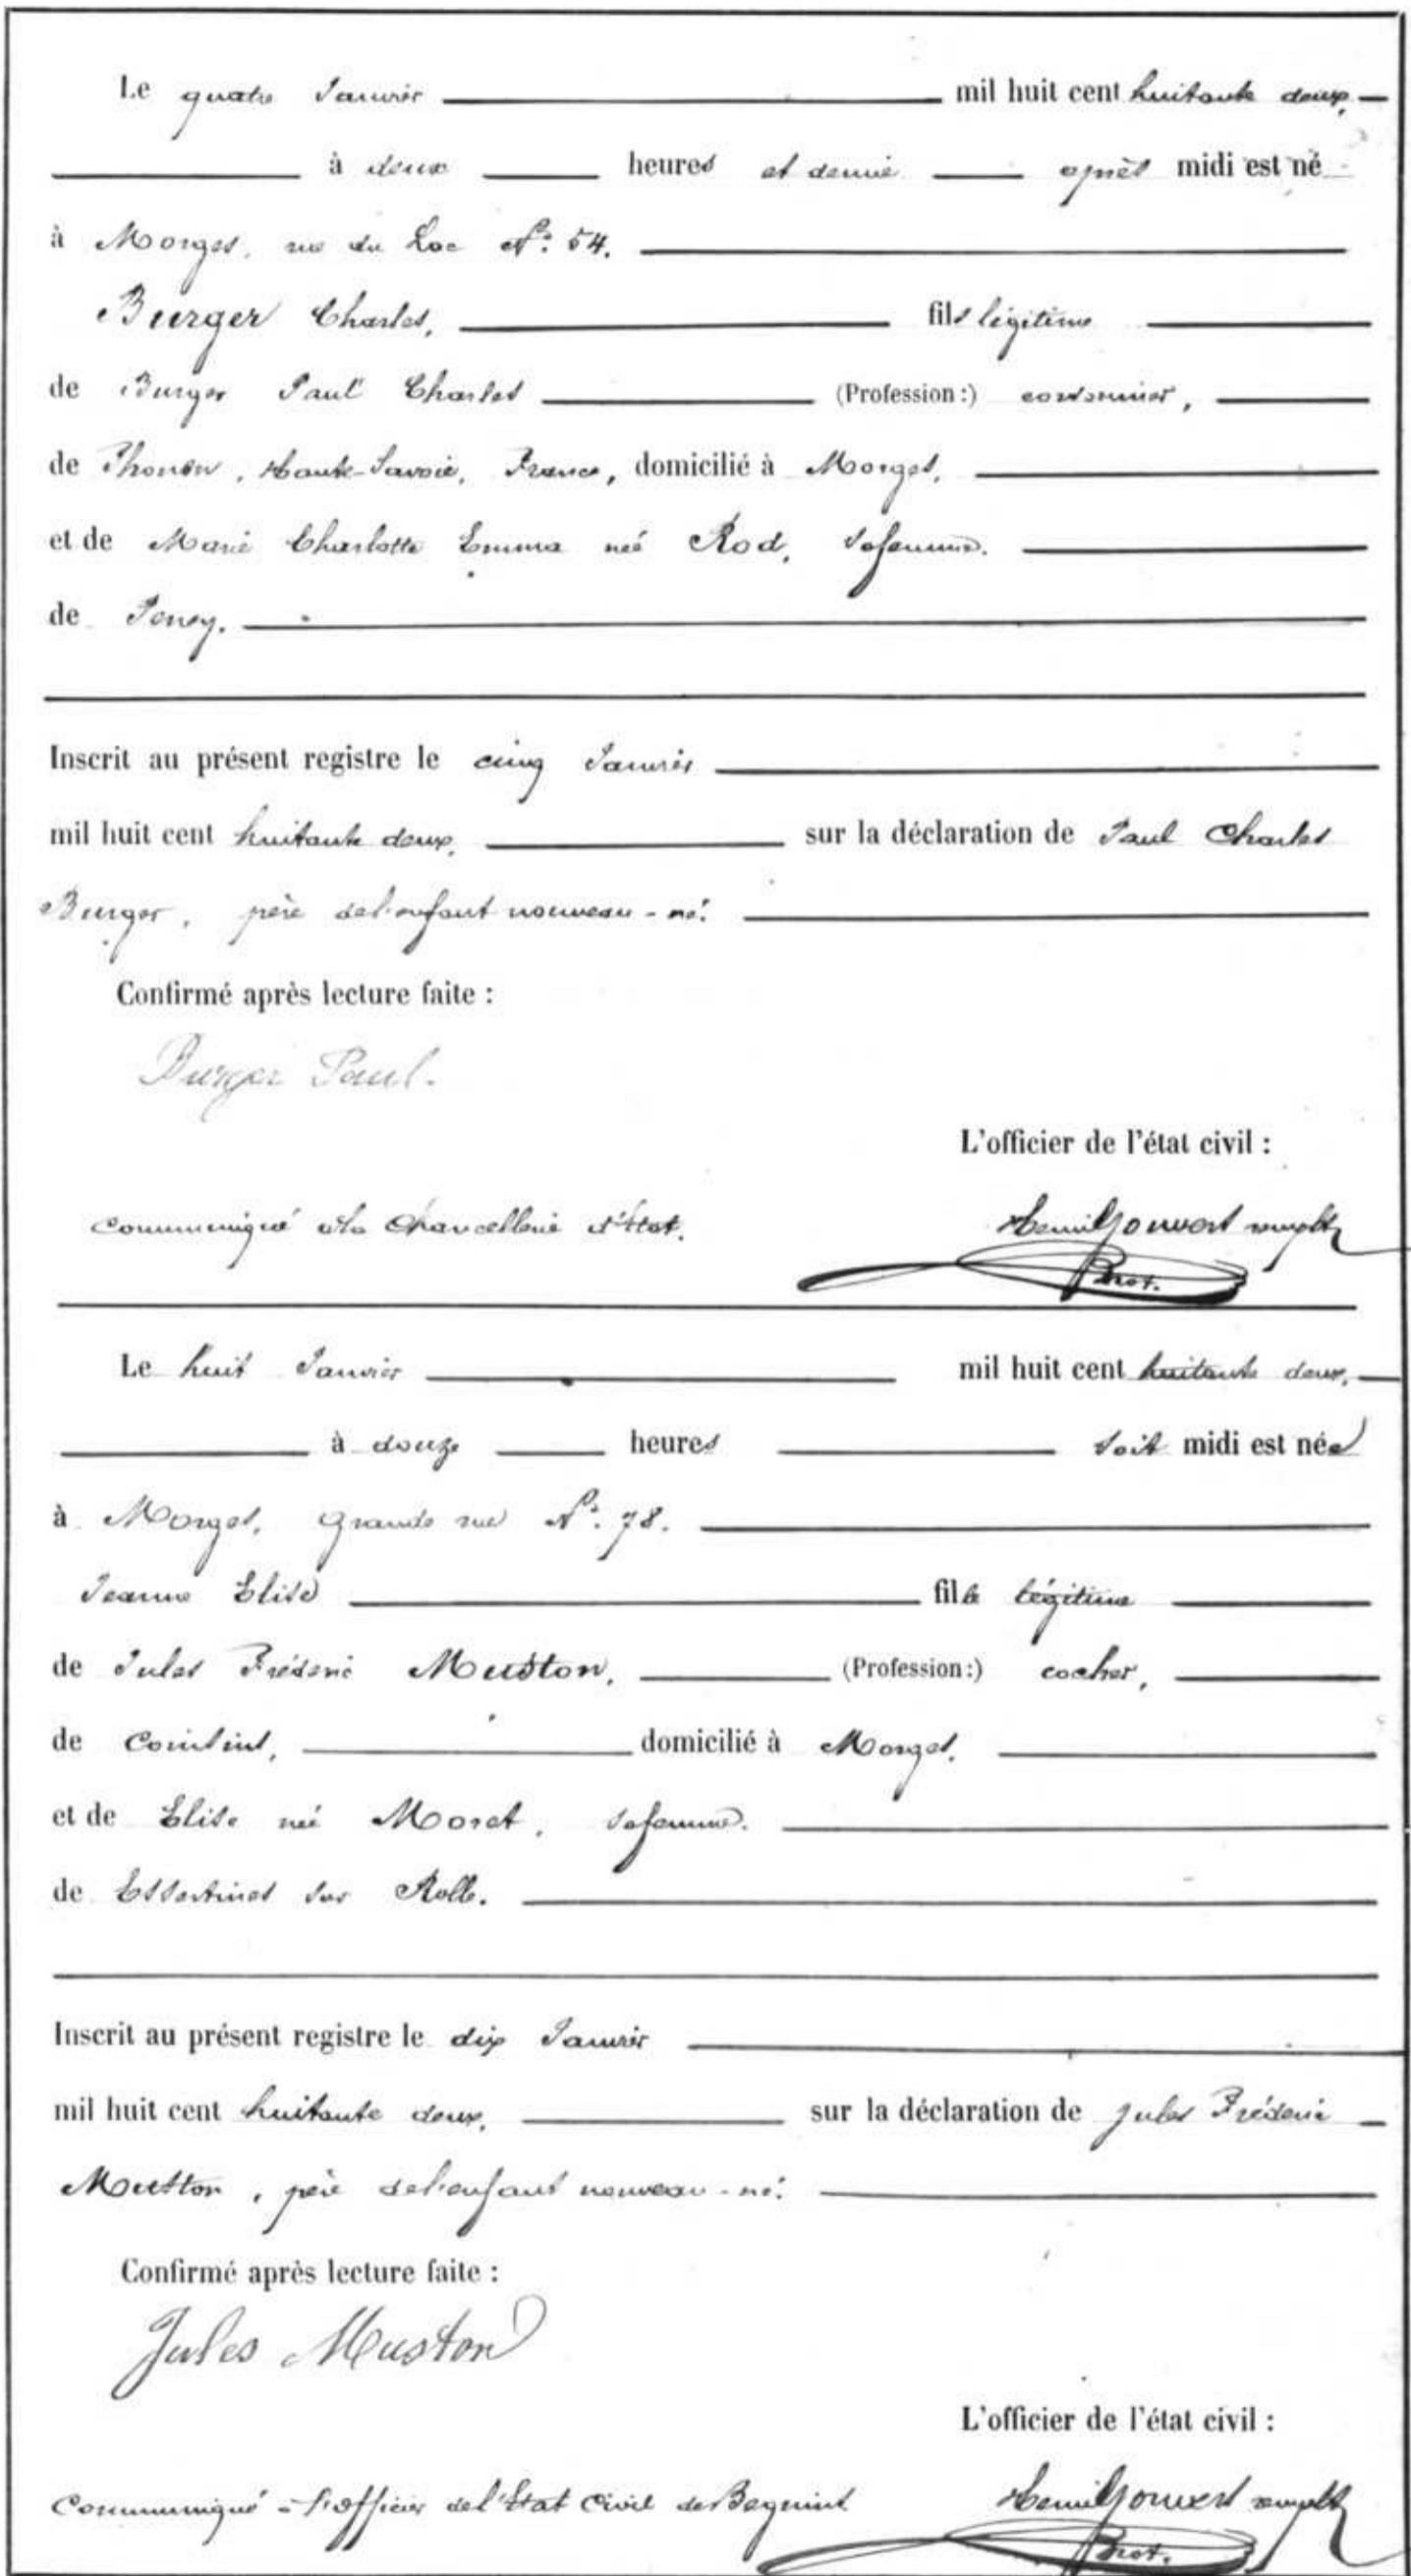 Le quatre Janvier mil huit cent huitante deux,
à deux heures et demie après midi est né
à Morges, rue du Lac N.° 54.
Burger Charles, fils légitime
de Burger Paul Charles (Profession:) cordonnier,
de Thonon, Haute-Savoie, France, domicilié à Morges,
et de Marie Charlotte Emma née Rod, sa femme.
de Peney.
Inscrit au présent registre le cinq Janvier
mil huit cent huitante deux, sur la déclaration de Paul Charles
Burger, père de l'enfant nouveau-né.
Confirmé après lecture faite :
Burger Paul.
L'officier de l'état civil :
Communiqué à la Chancellerie d'État.
Prot.
Le huit Janvier mil huit cent huitante deux,
à douze heures soit midi est née
à Morges, Grande rue N.° 78.
Jeanne Elise fille légitime
de Jules Frédéric Muston, (Profession:) cocher,
de Coinsins, domicilié à Morges,
et de Elise née Moret, sa femme.
de Essertines sur Rolle.
Inscrit au présent registre le dix Janvier
mil huit cent huitante deux, sur la déclaration de Jules Frédéric
Muston, père de l'enfant nouveau-né.
Confirmé après lecture faite :
Jules Muston
L'officier de l'état civil :
Communiqué à l'officier de l'État Civil de Begnins
Prot.